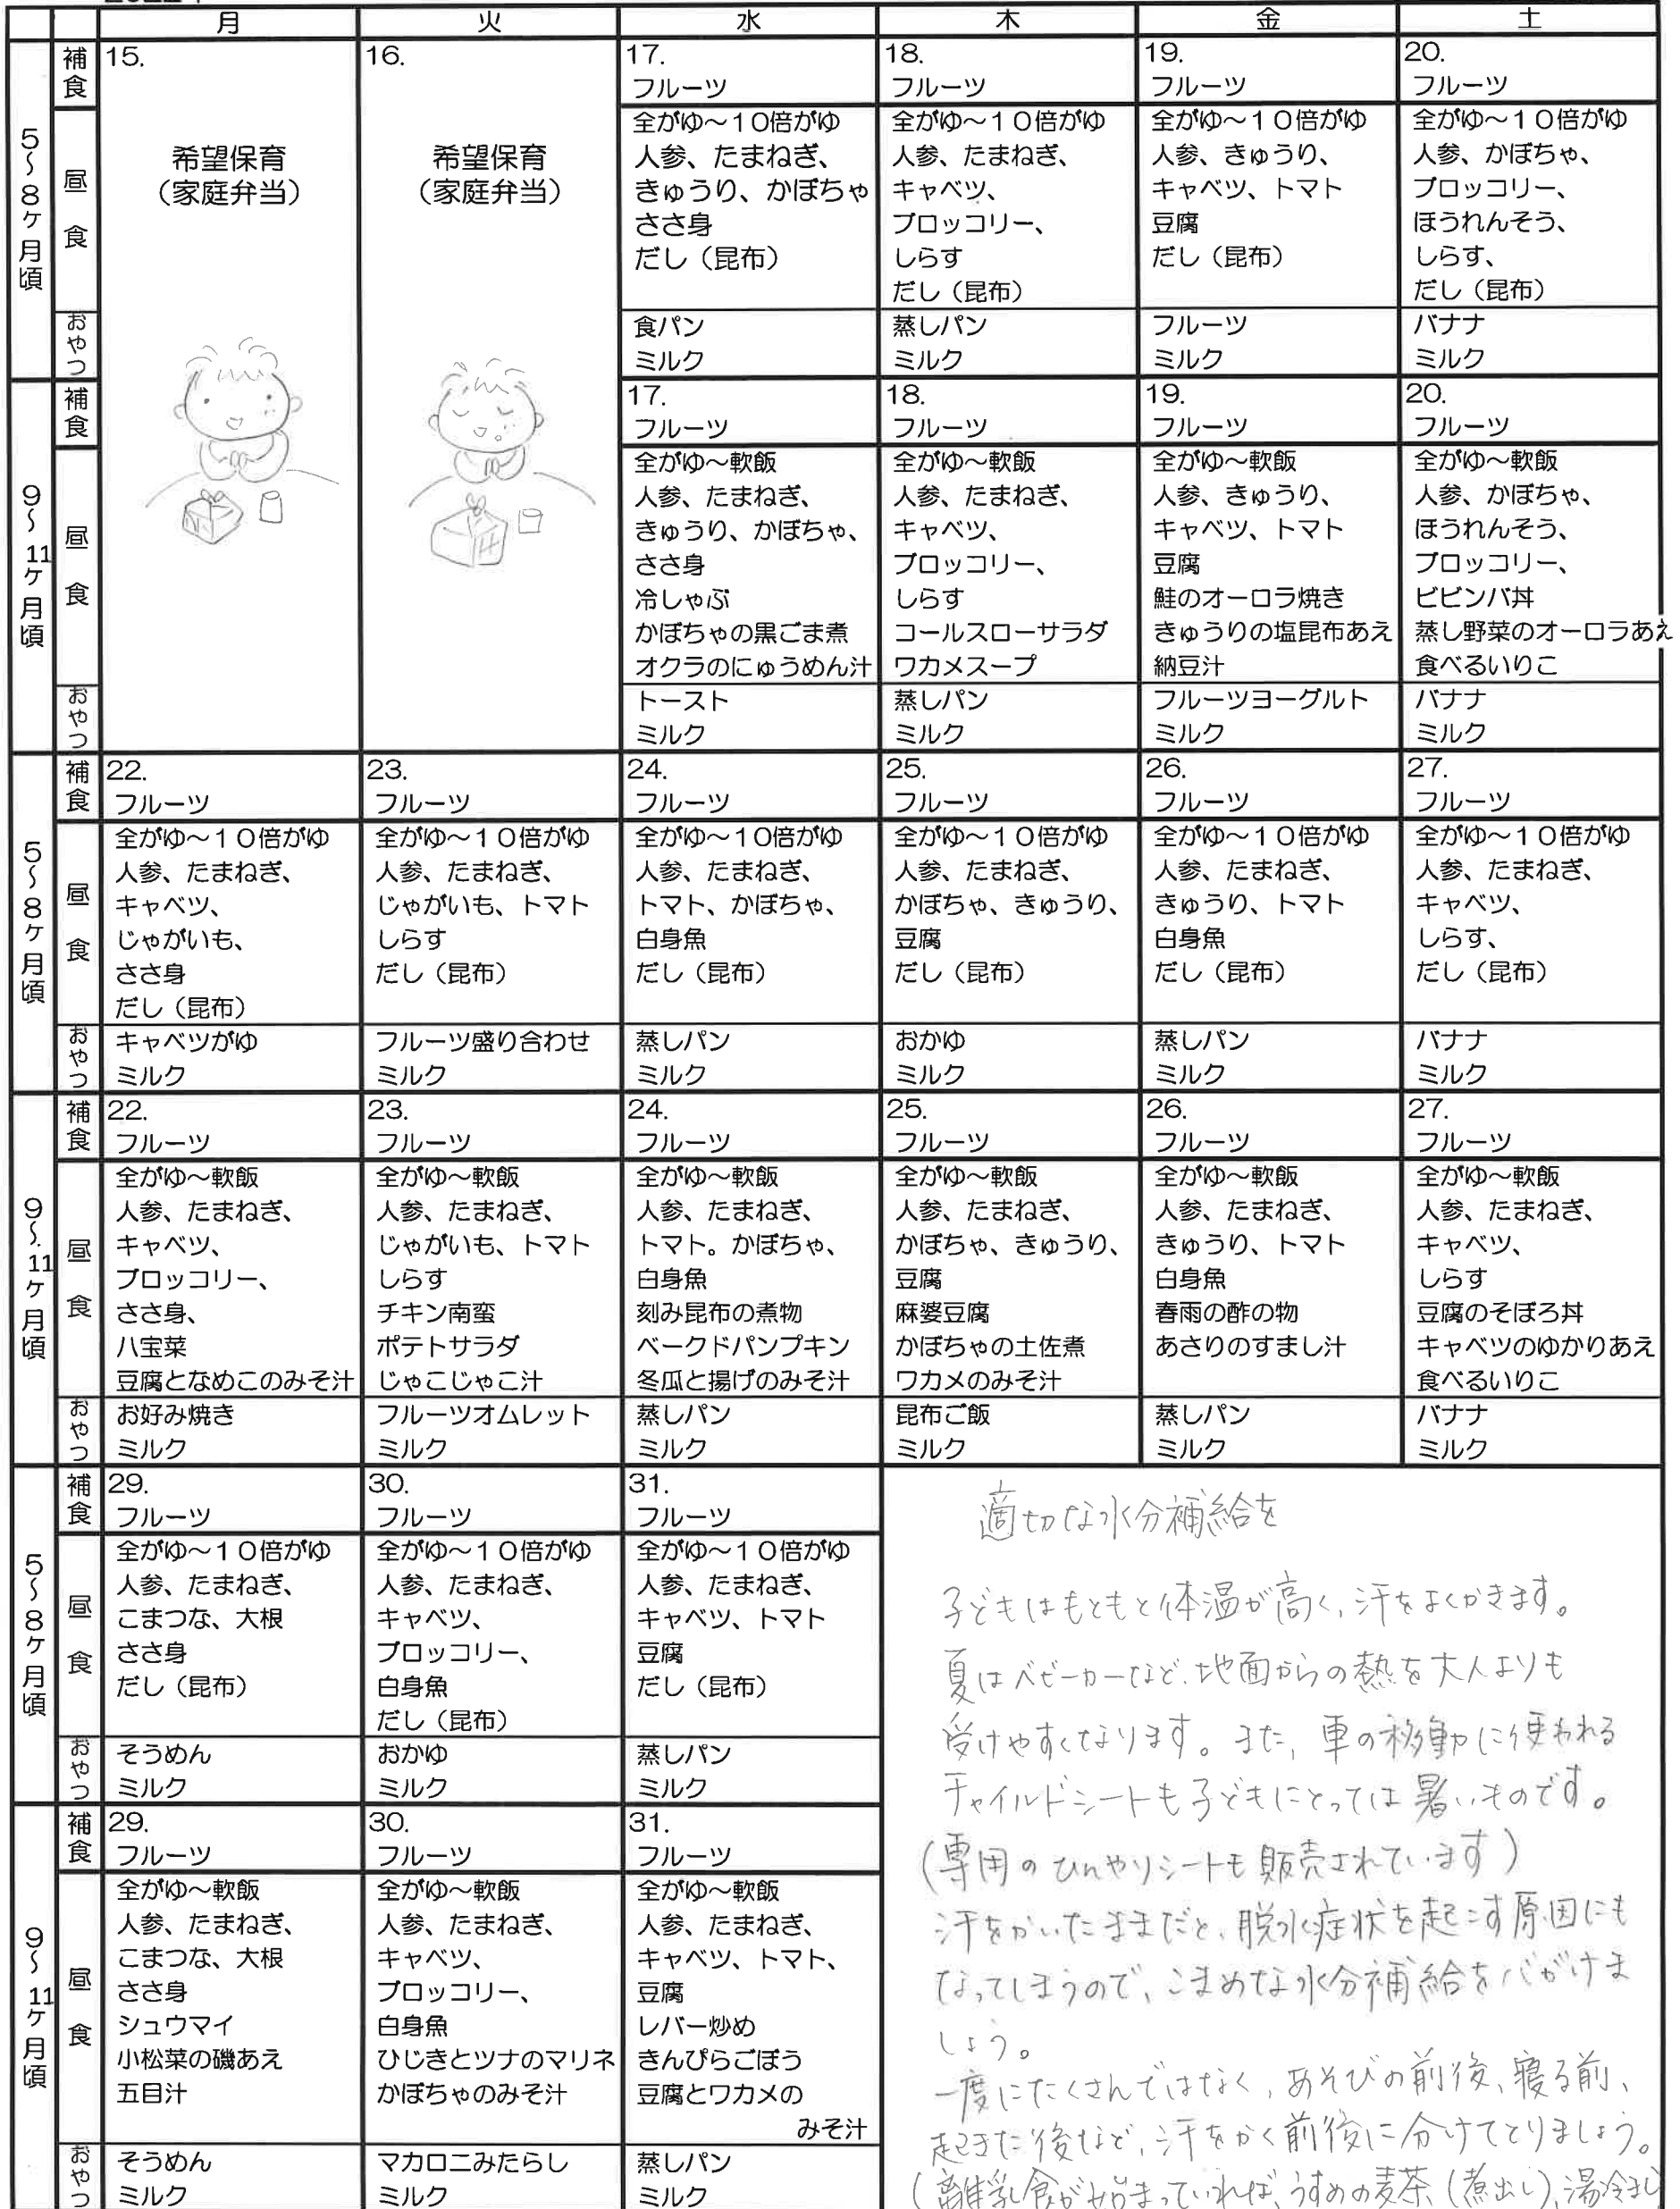 月 火 水 木 金 土
5～8ヶ月頃
補食
15.
16.
17.
フルーツ
18.
フルーツ
19.
フルーツ
20.
フルーツ
昼食
希望保育
（家庭弁当）
希望保育
（家庭弁当）
全がゆ～10倍がゆ
人参、たまねぎ、
きゅうり、かぼちゃ
ささ身
だし（昆布）
全がゆ～10倍がゆ
人参、たまねぎ、
キャベツ、
ブロッコリー、
しらす
だし（昆布）
全がゆ～10倍がゆ
人参、きゅうり、
キャベツ、トマト
豆腐
だし（昆布）
全がゆ～10倍がゆ
人参、かぼちゃ、
ブロッコリー、
ほうれんそう、
しらす、
だし（昆布）
おやつ
食パン
ミルク
蒸しパン
ミルク
フルーツ
ミルク
バナナ
ミルク
9～11ヶ月頃
補食
17.
フルーツ
18.
フルーツ
19.
フルーツ
20.
フルーツ
昼食
全がゆ～軟飯
人参、たまねぎ、
きゅうり、かぼちゃ、
ささ身
冷しゃぶ
かぼちゃの黒ごま煮
オクラのにゅうめん汁
全がゆ～軟飯
人参、たまねぎ、
キャベツ、
ブロッコリー、
しらす
コールスローサラダ
ワカメスープ
全がゆ～軟飯
人参、きゅうり、
キャベツ、トマト
豆腐
鮭のオーロラ焼き
きゅうりの塩昆布あえ
納豆汁
全がゆ～軟飯
人参、かぼちゃ、
ほうれんそう、
ブロッコリー、
ビビンバ丼
蒸し野菜のオーロラあえ
食べるいりこ
おやつ
トースト
ミルク
蒸しパン
ミルク
フルーツヨーグルト
ミルク
バナナ
ミルク
5～8ヶ月頃
補食
22.
フルーツ
23.
フルーツ
24.
フルーツ
25.
フルーツ
26.
フルーツ
27.
フルーツ
昼食
全がゆ～10倍がゆ
人参、たまねぎ、
キャベツ、
じゃがいも、
ささ身
だし（昆布）
全がゆ～10倍がゆ
人参、たまねぎ、
じゃがいも、トマト
しらす
だし（昆布）
全がゆ～10倍がゆ
人参、たまねぎ、
トマト、かぼちゃ、
白身魚
だし（昆布）
全がゆ～10倍がゆ
人参、たまねぎ、
かぼちゃ、きゅうり、
豆腐
だし（昆布）
全がゆ～10倍がゆ
人参、たまねぎ、
きゅうり、トマト
白身魚
だし（昆布）
全がゆ～10倍がゆ
人参、たまねぎ、
キャベツ、
しらす、
だし（昆布）
おやつ
キャベツがゆ
ミルク
フルーツ盛り合わせ
ミルク
蒸しパン
ミルク
おかゆ
ミルク
蒸しパン
ミルク
バナナ
ミルク
9～11ヶ月頃
補食
22.
フルーツ
23.
フルーツ
24.
フルーツ
25.
フルーツ
26.
フルーツ
27.
フルーツ
昼食
全がゆ～軟飯
人参、たまねぎ、
キャベツ、
ブロッコリー、
ささ身、
八宝菜
豆腐となめこのみそ汁
全がゆ～軟飯
人参、たまねぎ、
じゃがいも、トマト
しらす
チキン南蛮
ポテトサラダ
じゃこじゃこ汁
全がゆ～軟飯
人参、たまねぎ、
トマト。かぼちゃ、
白身魚
刻み昆布の煮物
ベークドパンプキン
冬瓜と揚げのみそ汁
全がゆ～軟飯
人参、たまねぎ、
かぼちゃ、きゅうり、
豆腐
麻婆豆腐
かぼちゃの土佐煮
ワカメのみそ汁
全がゆ～軟飯
人参、たまねぎ、
きゅうり、トマト
白身魚
春雨の酢の物
あさりのすまし汁
全がゆ～軟飯
人参、たまねぎ、
キャベツ、
しらす
豆腐のそぼろ丼
キャベツのゆかりあえ
食べるいりこ
おやつ
お好み焼き
ミルク
フルーツオムレット
ミルク
蒸しパン
ミルク
昆布ご飯
ミルク
蒸しパン
ミルク
バナナ
ミルク
5～8ヶ月頃
補食
29.
フルーツ
30.
フルーツ
31.
フルーツ
昼食
全がゆ～10倍がゆ
人参、たまねぎ、
こまつな、大根
ささ身
だし（昆布）
全がゆ～10倍がゆ
人参、たまねぎ、
キャベツ、
ブロッコリー、
白身魚
だし（昆布）
全がゆ～10倍がゆ
人参、たまねぎ、
キャベツ、トマト
豆腐
だし（昆布）
おやつ
そうめん
ミルク
おかゆ
ミルク
蒸しパン
ミルク
9～11ヶ月頃
補食
29.
フルーツ
30.
フルーツ
31.
フルーツ
昼食
全がゆ～軟飯
人参、たまねぎ、
こまつな、大根
ささ身
シュウマイ
小松菜の磯あえ
五目汁
全がゆ～軟飯
人参、たまねぎ、
キャベツ、
ブロッコリー、
白身魚
ひじきとツナのマリネ
かぼちゃのみそ汁
全がゆ～軟飯
人参、たまねぎ、
キャベツ、トマト、
豆腐
レバー炒め
きんぴらごぼう
豆腐とワカメの
みそ汁
おやつ
そうめん
ミルク
マカロニみたらし
ミルク
蒸しパン
ミルク
適切な水分補給を
子どもはもともと体温が高く、汗をよくかきます。
夏はベビーカーなど、地面からの熱を大人よりも
受けやすくなります。また、車の移動に使われる
チャイルドシートも子どもにとっては暑いものです。
(専用のひんやりシートも販売されています)
汗をかいたままだと、脱水症状を起こす原因にも
なってしまうので、こまめな水分補給を心がけま
しょう。
一度にたくさんではなく、あそびの前後、寝る前、
起きた後など、汗をかく前後に分けてとりましょう。
(離乳食が始まっていれば、うすめの麦茶(煮出し)、湯冷まし